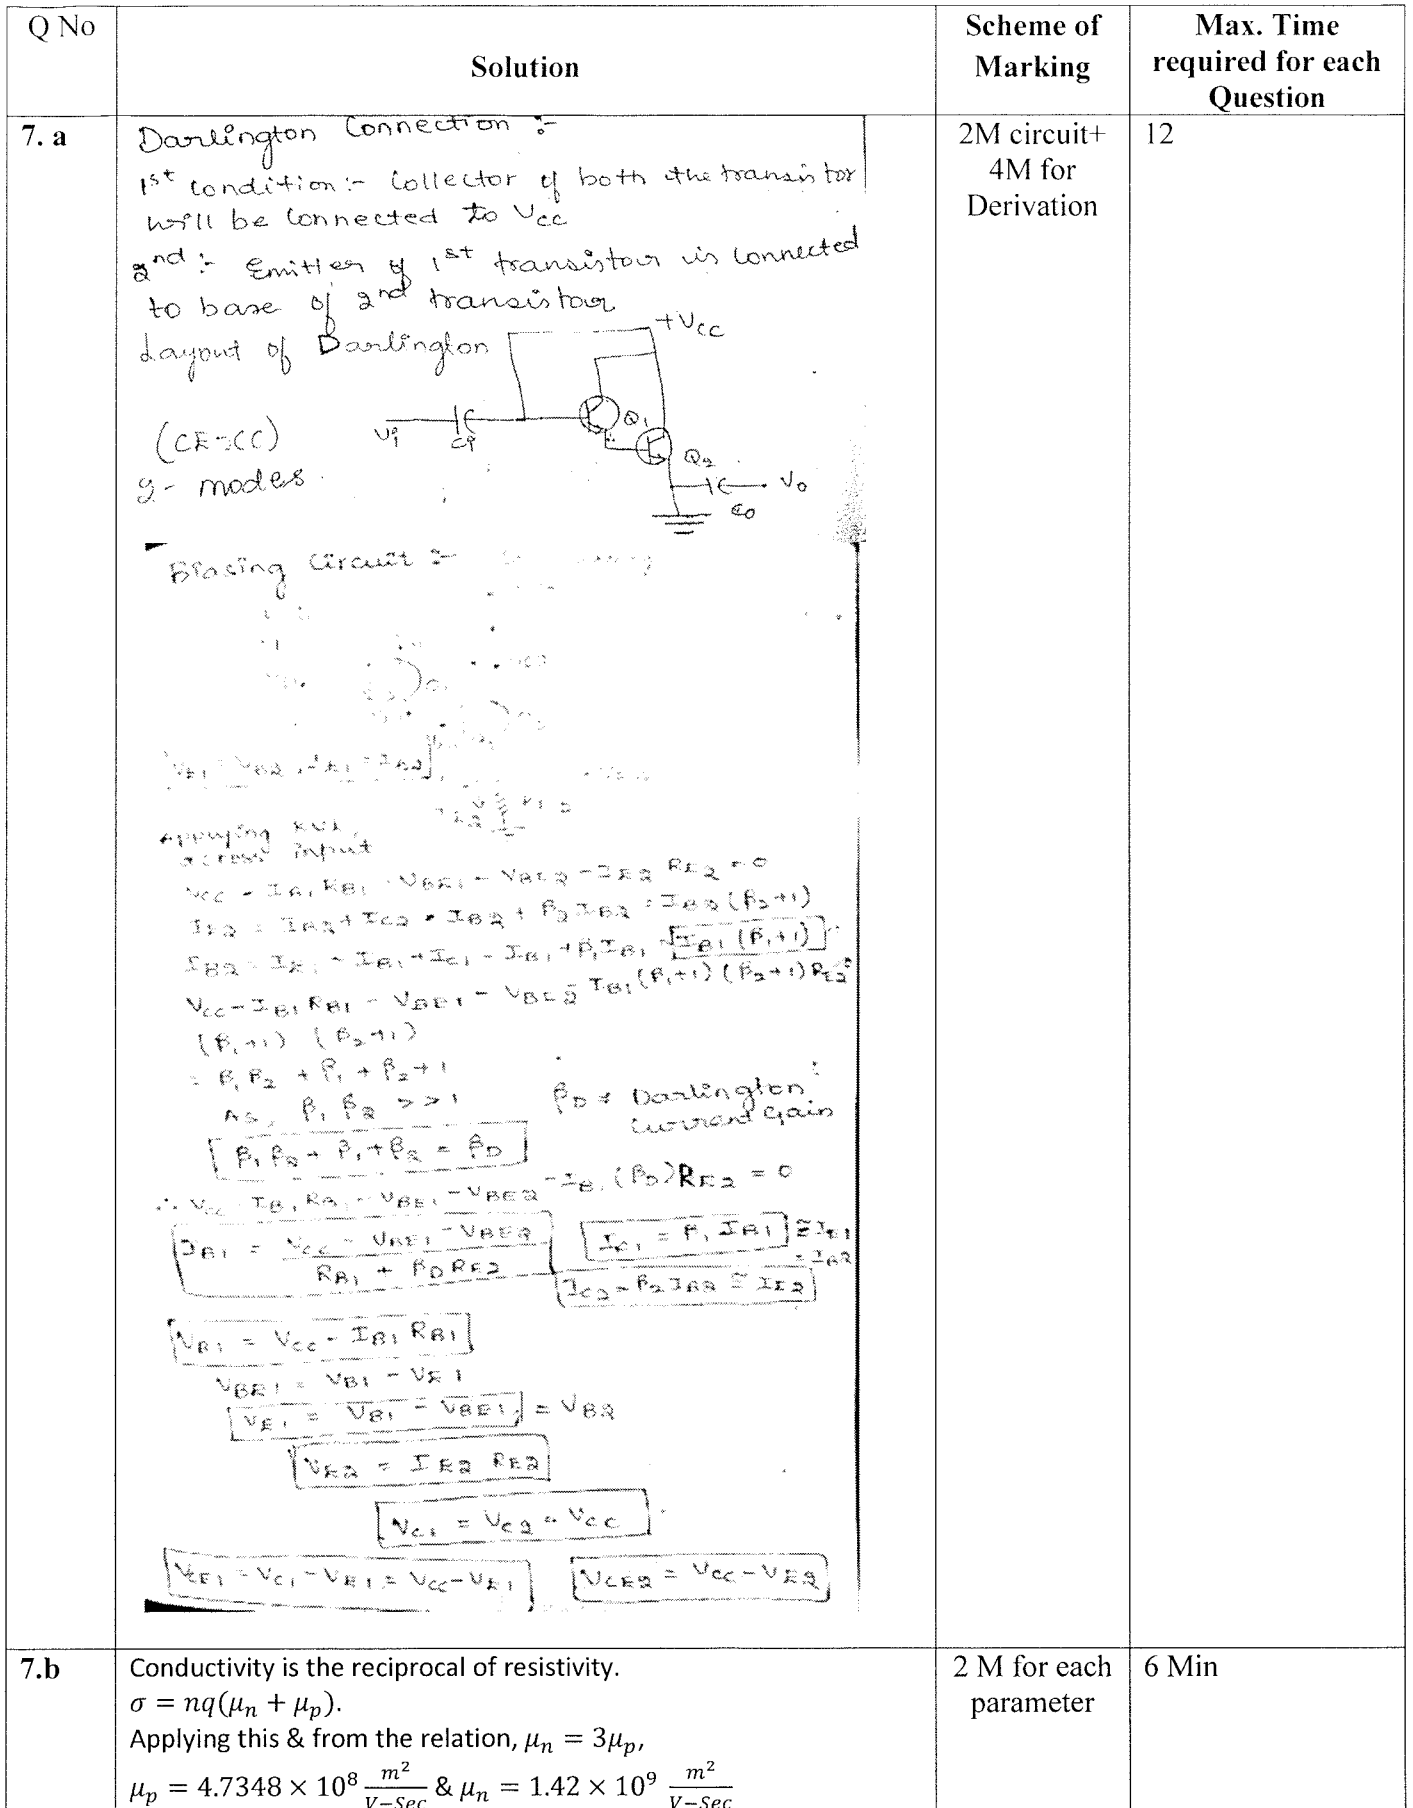 Q No
Solution
Scheme of
Marking
Max. Time
required for each
Question
7. a
Darlington Connection :-
1st Condition :- Collector of both the transistor
will be Connected to Vcc
2nd :- Emitter of 1st transistour is connected
to base of 2nd transistour
Layout of Darlington
+Vcc
(CE-CC)
2- modes
Vi
Ci
Q1
Q2
Vo
Co
Biasing Circuit :-
VE1 = VB2, IE1 = IB2
Applying KVL
across input
Vcc - IB1 RB1 - VBE1 - VBE2 - IE2 RE2 = 0
IE2 = IB2 + IC2 = IB2 + β2 IB2 = IB2 (β2+1)
IB2 = IE1 = IB1 + IC1 = IB1 + β1 IB1 = IB1 (β1+1)
Vcc - IB1 RB1 - VBE1 - VBE2 - IB1 (β1+1) (β2+1) RE2
(β1+1) (β2+1)
= β1 β2 + β1 + β2 + 1
As, β1 β2 >> 1
βD = Darlington
Current Gain
β1 β2 + β1 + β2 = βD
∴ Vcc - IB1 RB1 - VBE1 - VBE2 - IB1 (βD) RE2 = 0
IB1 = Vcc - VBE1 - VBE2 / RB1 + βD RE2
IC1 = β1 IB1 ≅ IE1
= IB2
IC2 = β2 IB2 ≅ IE2
VB1 = Vcc - IB1 RB1
VBE1 = VB1 - VE1
VE1 = VB1 - VBE1 = VB2
VE2 = IE2 RE2
VC1 = VC2 = VCC
VCE1 = VC1 - VE1 = VCC - VE1
VCE2 = VCC - VE2
2M circuit+
4M for
Derivation
12
7.b
Conductivity is the reciprocal of resistivity.
σ = nq(μn + μp).
Applying this & from the relation, μn = 3μp,
μp = 4.7348 × 10⁸ m²/V−Sec & μn = 1.42 × 10⁹ m²/V−Sec
2 M for each
parameter
6 Min